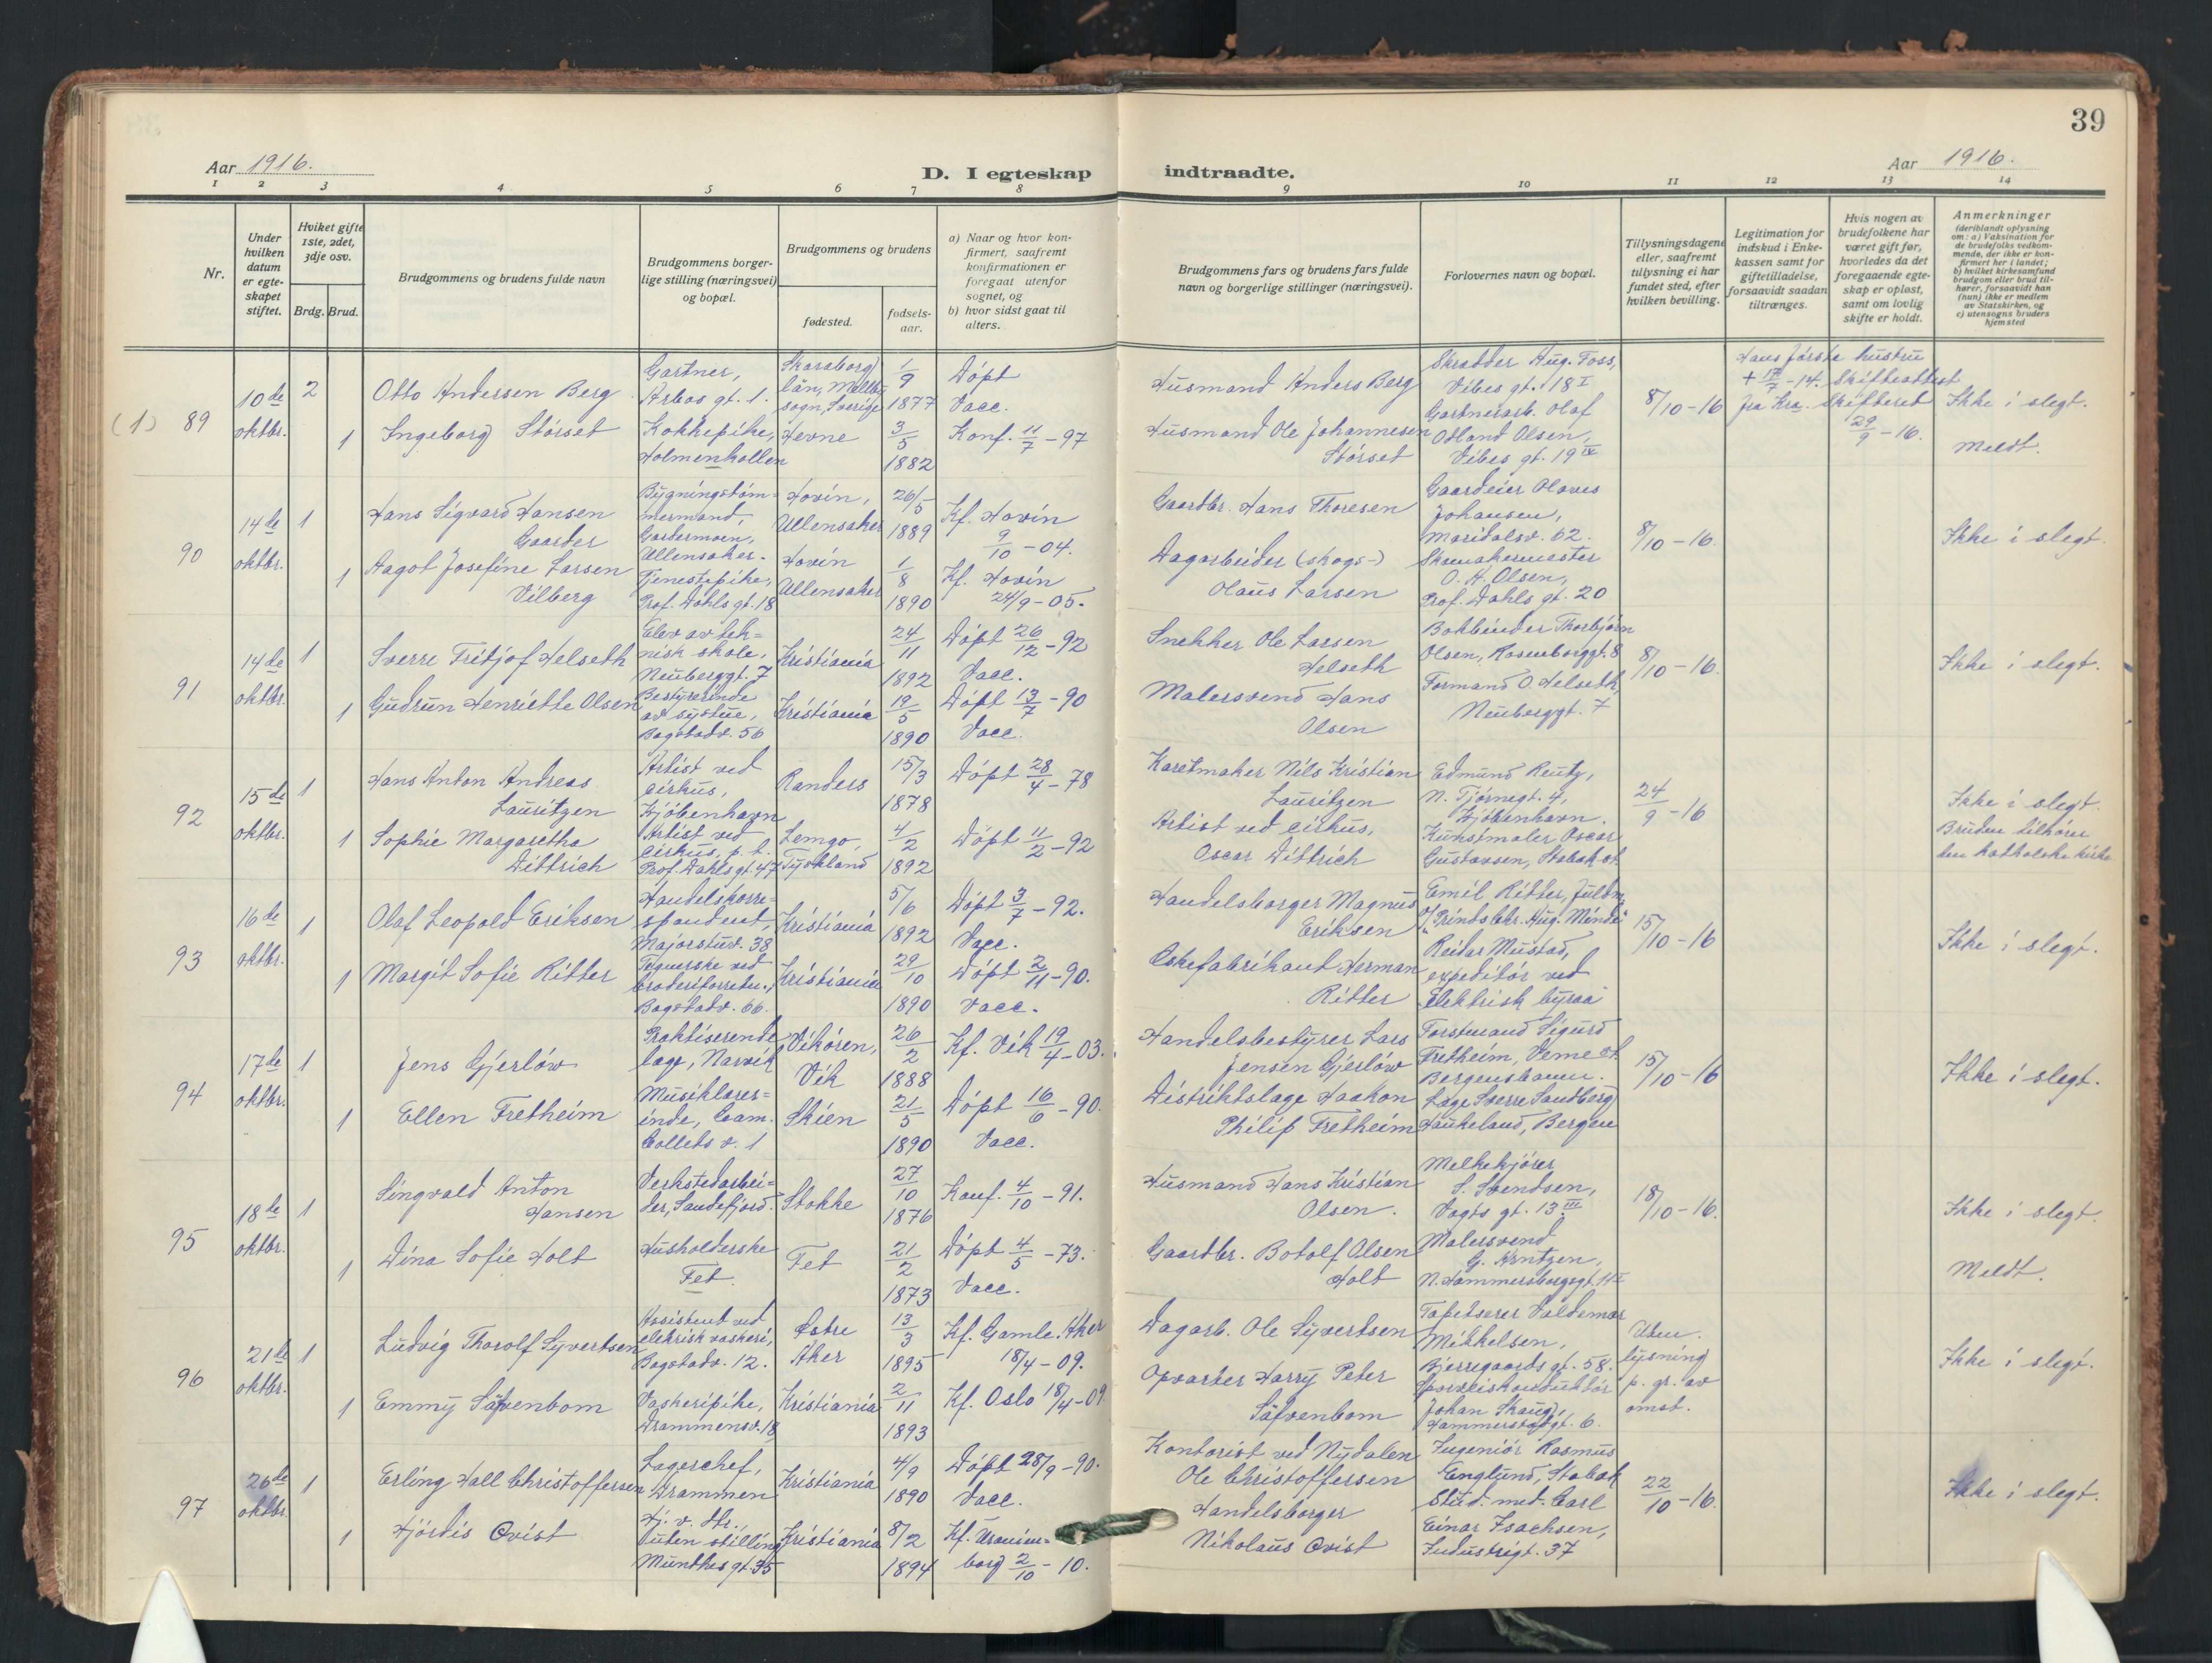 39
Aar 1916.
D. I egteskap indtraadte.
Aar 1916.
1 2 3 4 5 6 7 8 9 10 11 12 13 14
Nr.
Under hvilken datum er egteskapet stiftet.
Hviket gifte 1ste, 2det, 3dje osv.
Brdg. Brud.
Brudgommens og brudens fulde navn
Brudgommens borgerlige stilling (næringsvei) og bopæl.
Brudgommens og brudens
fødested.
fødselsaar.
a) Naar og hvor konfirmert, saafremt konfirmationen er foregaat utenfor sognet, og
b) hvor sidst gaat til alters.
Brudgommens fars og brudens fars fulde navn og borgerlige stillinger (næringsvei).
Forlovernes navn og bopæl.
Tillysningsdagene eller, saafremt tillysning ei har fundet sted, efter hvilken bevilling.
Legitimation for indskud i Enkekassen samt for giftetilladelse, forsaavidt saadan tiltrænges.
Hvis nogen av brudefolkene har været gift før, hvorledes da det foregaaende egteskap er opløst, samt om lovlig skifte er holdt.
Anmerkninger
(deriblandt oplysning om: a) Vaksination for de brudefolks vedkommende, der ikke er konfirmert her i landet; b) hvilket kirkesamfund brudgom eller brud tilhører, forsaavidt han (hun) ikke er medlem av Statskirken, og c) utensogns bruders hjemsted
(1) 89
10de oktbr.
2
Otto Andersen Berg
Gartner, Arbos gt. 1.
Skaraborg län, sogn, Sverige
1/9 1877
Döpt Vacc.
Husmand Anders Berg
Skrædder Aug. Foss, Vibes gt. 18 I
8/10-16
Hans første hustru + 17/7-14. Skifteattest fra Kra. Skifteret 29/9-16.
Ikke i slegt.
1
Ingeborg Störset
Kokkepike, Holmenkollen
Hevne
3/5 1882
Konf. 11/7-97
Husmand Ole Johannesen Störset
Gartnerarb. Olaf Odland Olsen, Vibes gt. 19 IV
Meldt.
90
14de oktbr.
1
Hans Sigvard Hansen Gaarder
Bygningstömmermand, Gardermoen, Ullensaker.
Hovin, Ullensaker
26/5 1889
Kf. Hovin 9/10-04.
Gaardbr. Hans Thoresen
Gaardeier Olaves Johansen, Maridalsv. 62.
8/10-16.
Ikke i slegt.
1
Aagot Josefine Larsen Vilberg
Tjenestepike, Prof. Dahls gt. 18
Hovin Ullensaker
1/8 1890
Kf. Hovin 24/9-05.
Dagarbeider (skogs-) Olaus Larsen
Skomakermester O. H. Olsen, Prof. Dahls gt. 20
91
14de oktbr.
1
Sverre Fritjof Helseth
Elev av teknisk skole, Neuberggt. 7
Kristiania
24/11 1892
Döpt 26/12-92 Vacc.
Snekker Ole Larsen Helseth
Bokbinder Thorbjörn Olsen, Rosenborggt. 8
8/10-16.
Ikke i slegt.
1
Gudrun Henriette Olsen
Bestyrerinde av systue, Bogstadv. 56
Kristiania
19/5 1890
Döpt 13/7-90 Vacc.
Malersvend Hans Olsen
Formand O. Helseth, Neuberggt. 7
92
15de oktbr.
1
Hans Anton Andreas Lauritzen
Artist ved cirkus, Kjöbenhavn
Randers
15/3 1878
Döpt 28/4-78
Karetmaker Nils Kristian Lauritzen
Edmund Reutz, N. Tjörnegt. 4, Kjöbenhavn.
24/9-16
Ikke i slegt.
1
Sophie Margaretha Dittrich
Artist ved cirkus, p. t. Prof. Dahls gt. 47
Lemgo, Tyskland
4/2 1892
Döpt 11/2-92
Artist ved cirkus, Oscar Dittrich
Kunstmaler Oscar Gustavsen, Stabæk st.
Bruden tilhörer den katholske kirke
93
16de oktbr.
1
Olaf Leopold Eriksen
Handelskorrespondent, Majorstuv. 38
Kristiania
5/6 1892
Döpt 3/7-92. Vacc.
Handelsborger Magnus Eriksen
Emil Ritter, "Prinds Chr. Aug. Minde"
15/10-16
Ikke i slegt.
1
Margit Sofie Ritter
Tegnerske ved broderiforretn., Bogstadv. 66.
Kristiania
29/10 1890
Döpt 2/11-90. Vacc.
Eskefabrikant Herman Ritter
Reidar Mustad, expeditör ved Elektrisk byraa
94
17de oktbr.
1
Jens Gjerlöw
Praktiserende læge, Narvik
Vikören, Vik
26/2 1888
Kf. Vik 19/4-03.
Handelsbestyrer Lars Jensen Gjerlöw
Forstmand Sigurd Fretheim, Veme st. Bergensbanen.
15/10-16
Ikke i slegt.
1
Ellen Fretheim
Musiklærerinde, Cam. Colletts v. 1
Skien
21/5 1890
Döpt 16/6-90. Vacc.
Distriktslæge Haakon Philip Fretheim
Læge Sverre Sandberg Haukeland, Bergen
95
18de oktbr.
1
Singvald Anton Hansen
Verkstedarbeider, Sandefjord.
Stokke
27/10 1876
Konf. 4/10-91.
Husmand Hans Kristian Olsen.
Melkekjörer S. Svendsen, Vogts gt. 13 III
18/10-16.
Ikke i slegt.
1
Dina Sofie Holt
Husholderske Fet.
Fet
21/2 1873
Döpt 4/5-73. Vacc.
Gaardbr. Botolf Olsen Holt
Malersvend G. Arntzen, N. Hammersborggt. 11
Meldt.
96
21de oktbr.
1
Ludvig Thorolf Syvertsen
Assistent ved elektrisk vaskeri, Bogstadv. 12.
Östre Aker
13/3 1895
Kf. Gamle Aker 18/4-09.
Dagarb. Ole Syvertsen
Tapetserer Valdemar Mikkelsen, Bjerregaards gt. 58.
Uten lysning p. gr. av omst.
Ikke i slegt.
1
Emmy Säfvenbom
Vaskeripike, Drammensv. 18
Kristiania
2/11 1893
Kf. Oslo 18/4-09
Opvarter Harry Peter Säfvenbom
Sporveiskonduktör Johan Skaug, Hammerstadgt. 6.
97
26de oktbr.
1
Erling Hall Christoffersen
Lagerchef, Drammen
Kristiania
4/9 1890
Döpt 28/9-90. Vacc.
Kontorist ved Nydalen Ole Christoffersen
Ingeniör Rasmus Englund, Stabæk
22/10-16.
Ikke i slegt.
1
Hjördis Qvist
Uten stilling Munthes gt. 35
Kristiania
8/2 1894
Kf. Uranienborg 2/10-10.
Handelsborger Nikolaus Qvist
Stud. med. Carl Einar Isachsen, Industrigt. 37